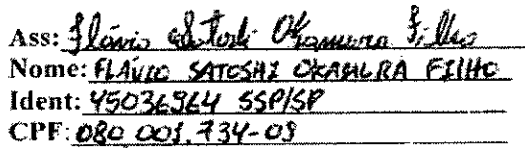 Ass: Flávio Satoshi Okamura Filho
Nome: FLÁVIO SATOSHI OKAMURA FILHO
Ident: 45036964 SSP/SP
CPF: 080 001.734-09